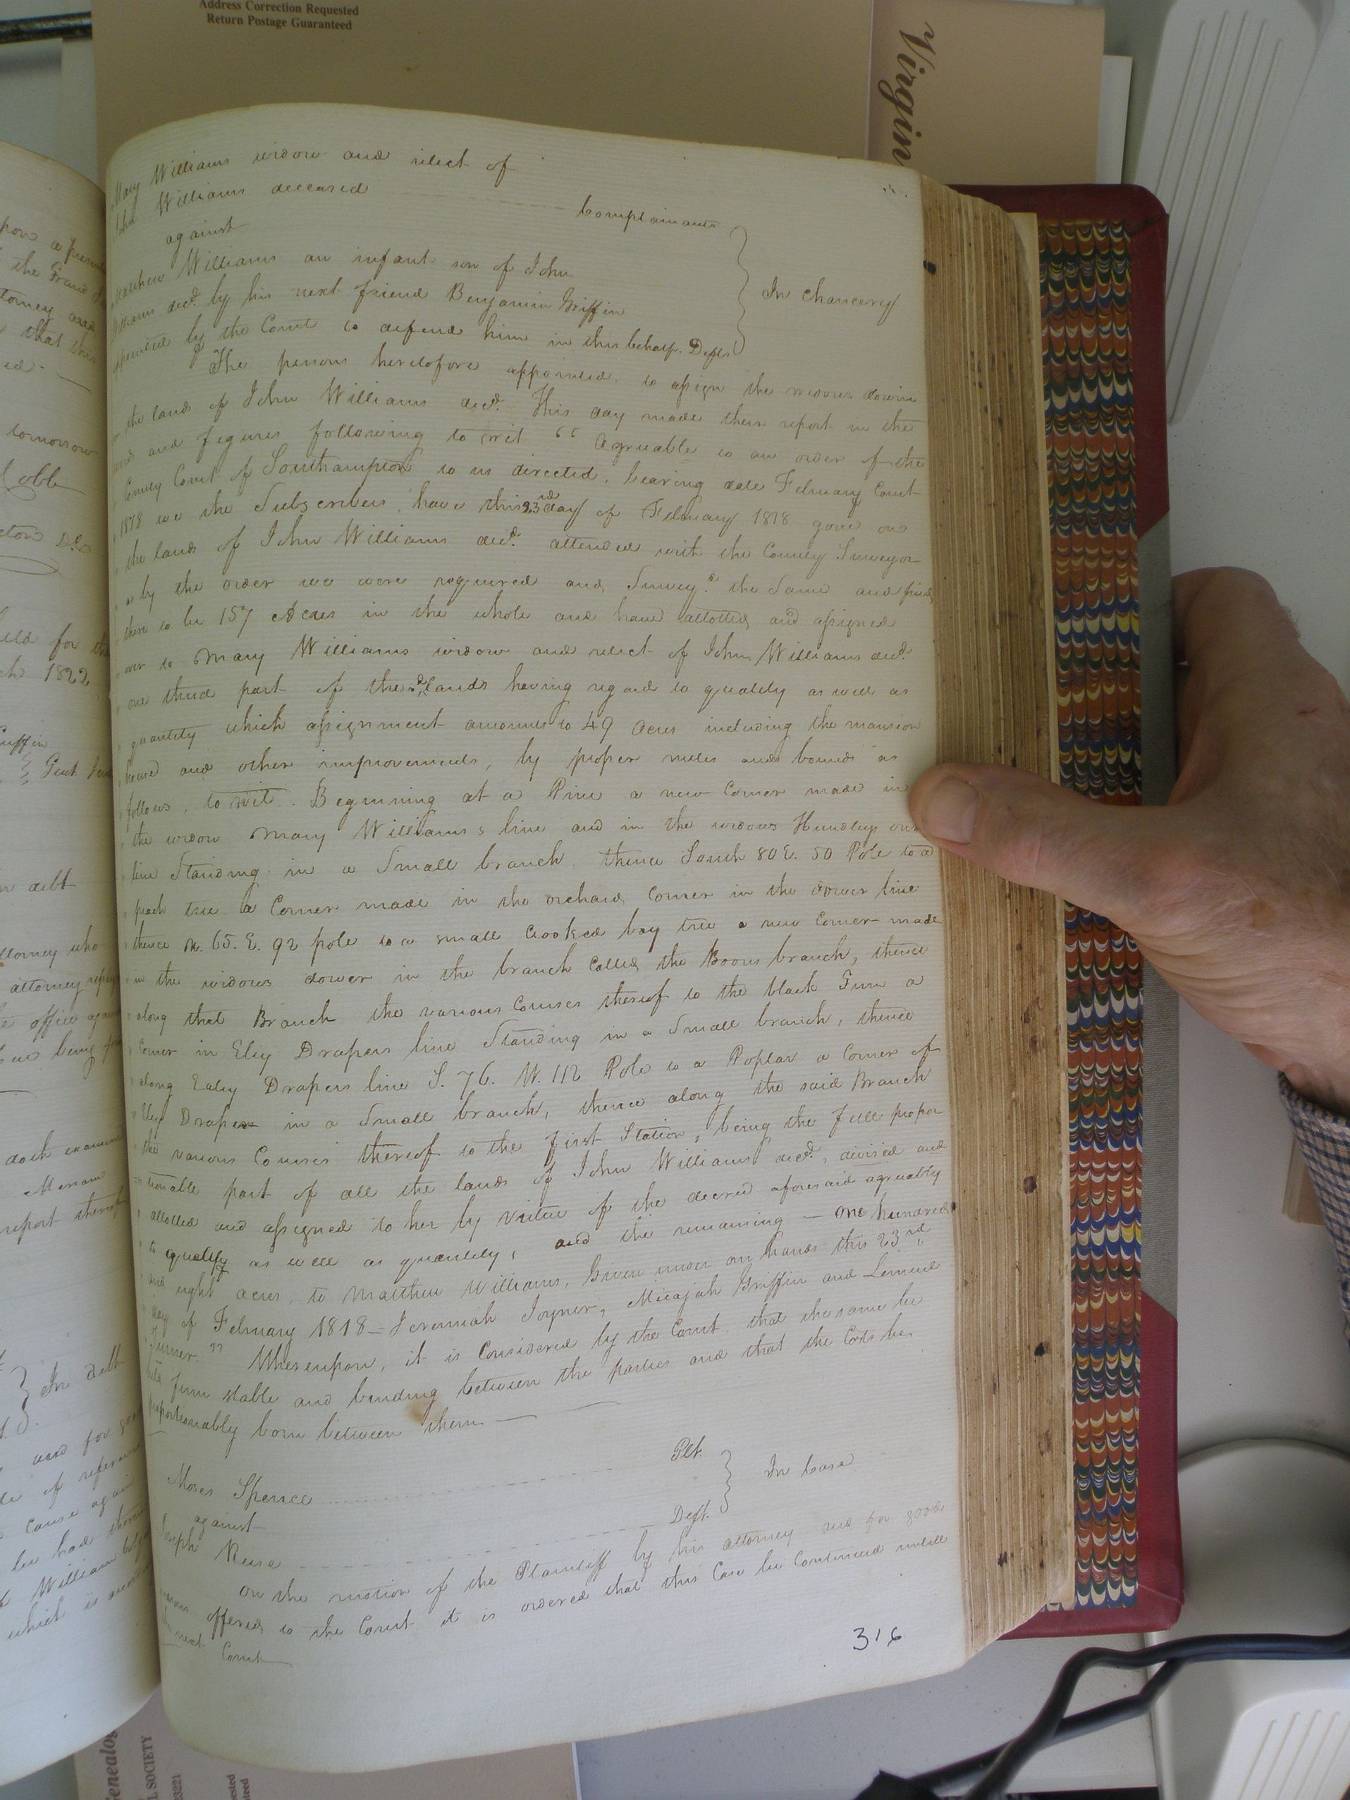 Address Correction Requested
Return Postage Guaranteed
Virgin
Mary Williams widow and relict of
John Williams deceased Complainant
against
Matthew Williams an infant son of John
Williams decd. by his next friend Benjamin Griffin
appointed by the Court to defend him in this behalf. Deft.
In Chancery
The persons heretofore appointed to assign the widows dower
in the lands of John Williams decd. This day made their report in the
words and figures following to wit "Agreeable to an order of the
County Court of Southampton to us directed, bearing date February Court
1818 we the Subscribers, have this 23rd day of February 1818 gone on
the lands of John Williams decd. attended with the County Surveyor
as by the order we were required and Survey.d the Same and find
there to be 157 Acres in the whole and have allotted and assigned
over to Mary Williams widow and relict of John Williams decd.
one third part of the sd. lands having regard to quality as well as
quantity which assignment amounts to 49 acres including the mansion
house and other improvements, by proper metes and bounds as
follows, to wit. Beginning at a Pine a new Corner made in
the widow Mary Williams's line and in the widows Hundleys
line Standing in a Small branch, thence South 80 E. 50 Pole to a
peach tree a Corner made in the orchard Corner in the dower line
thence N. 65. E. 92 pole to a small crooked bay tree a new Corner made
in the widows dower in the branch Called the Boons branch, thence
along that Branch the various Courses thereof to the black Gum a
Corner in Eley Drapers line Standing in a Small branch, thence
along Ealey Drapers line S. 76. W. 112 Pole to a Poplar a Corner of
Eley Draper in a Small branch, thence along the said Branch
the various Courses thereof to the first Station, being the full propor
tionable part of all the lands of John Williams decd., divided and
allotted and assigned to her by virtue of the decree aforesaid agreeably
to quality as well as quantity, and the remaining one hundred
and eight acres to Matthew Williams. Given under our hands this 23rd
day of February 1818 Jeremiah Joyner, Micajah Griffin and Lemuel
Turner." Whereupon, it is Considered by the Court that the same be
held firm stable and binding between the parties and that the Costs be
proportionably born between them
Moses Spence Plt.
against
Joseph Reese Deft.
In Case
On the motion of the Plaintiff by his attorney and for good
reasons offered to the Court it is ordered that this Case be Continued untill
the next Court
316
pon a
the Grand
torney
that
tomorrow
Cobb
1822
Griffin
Gent
debt
attorney who
attorney
office
doth
report
In debt
and for good
of
cause
he had
William
which is
Genealog
L SOCIETY
23221